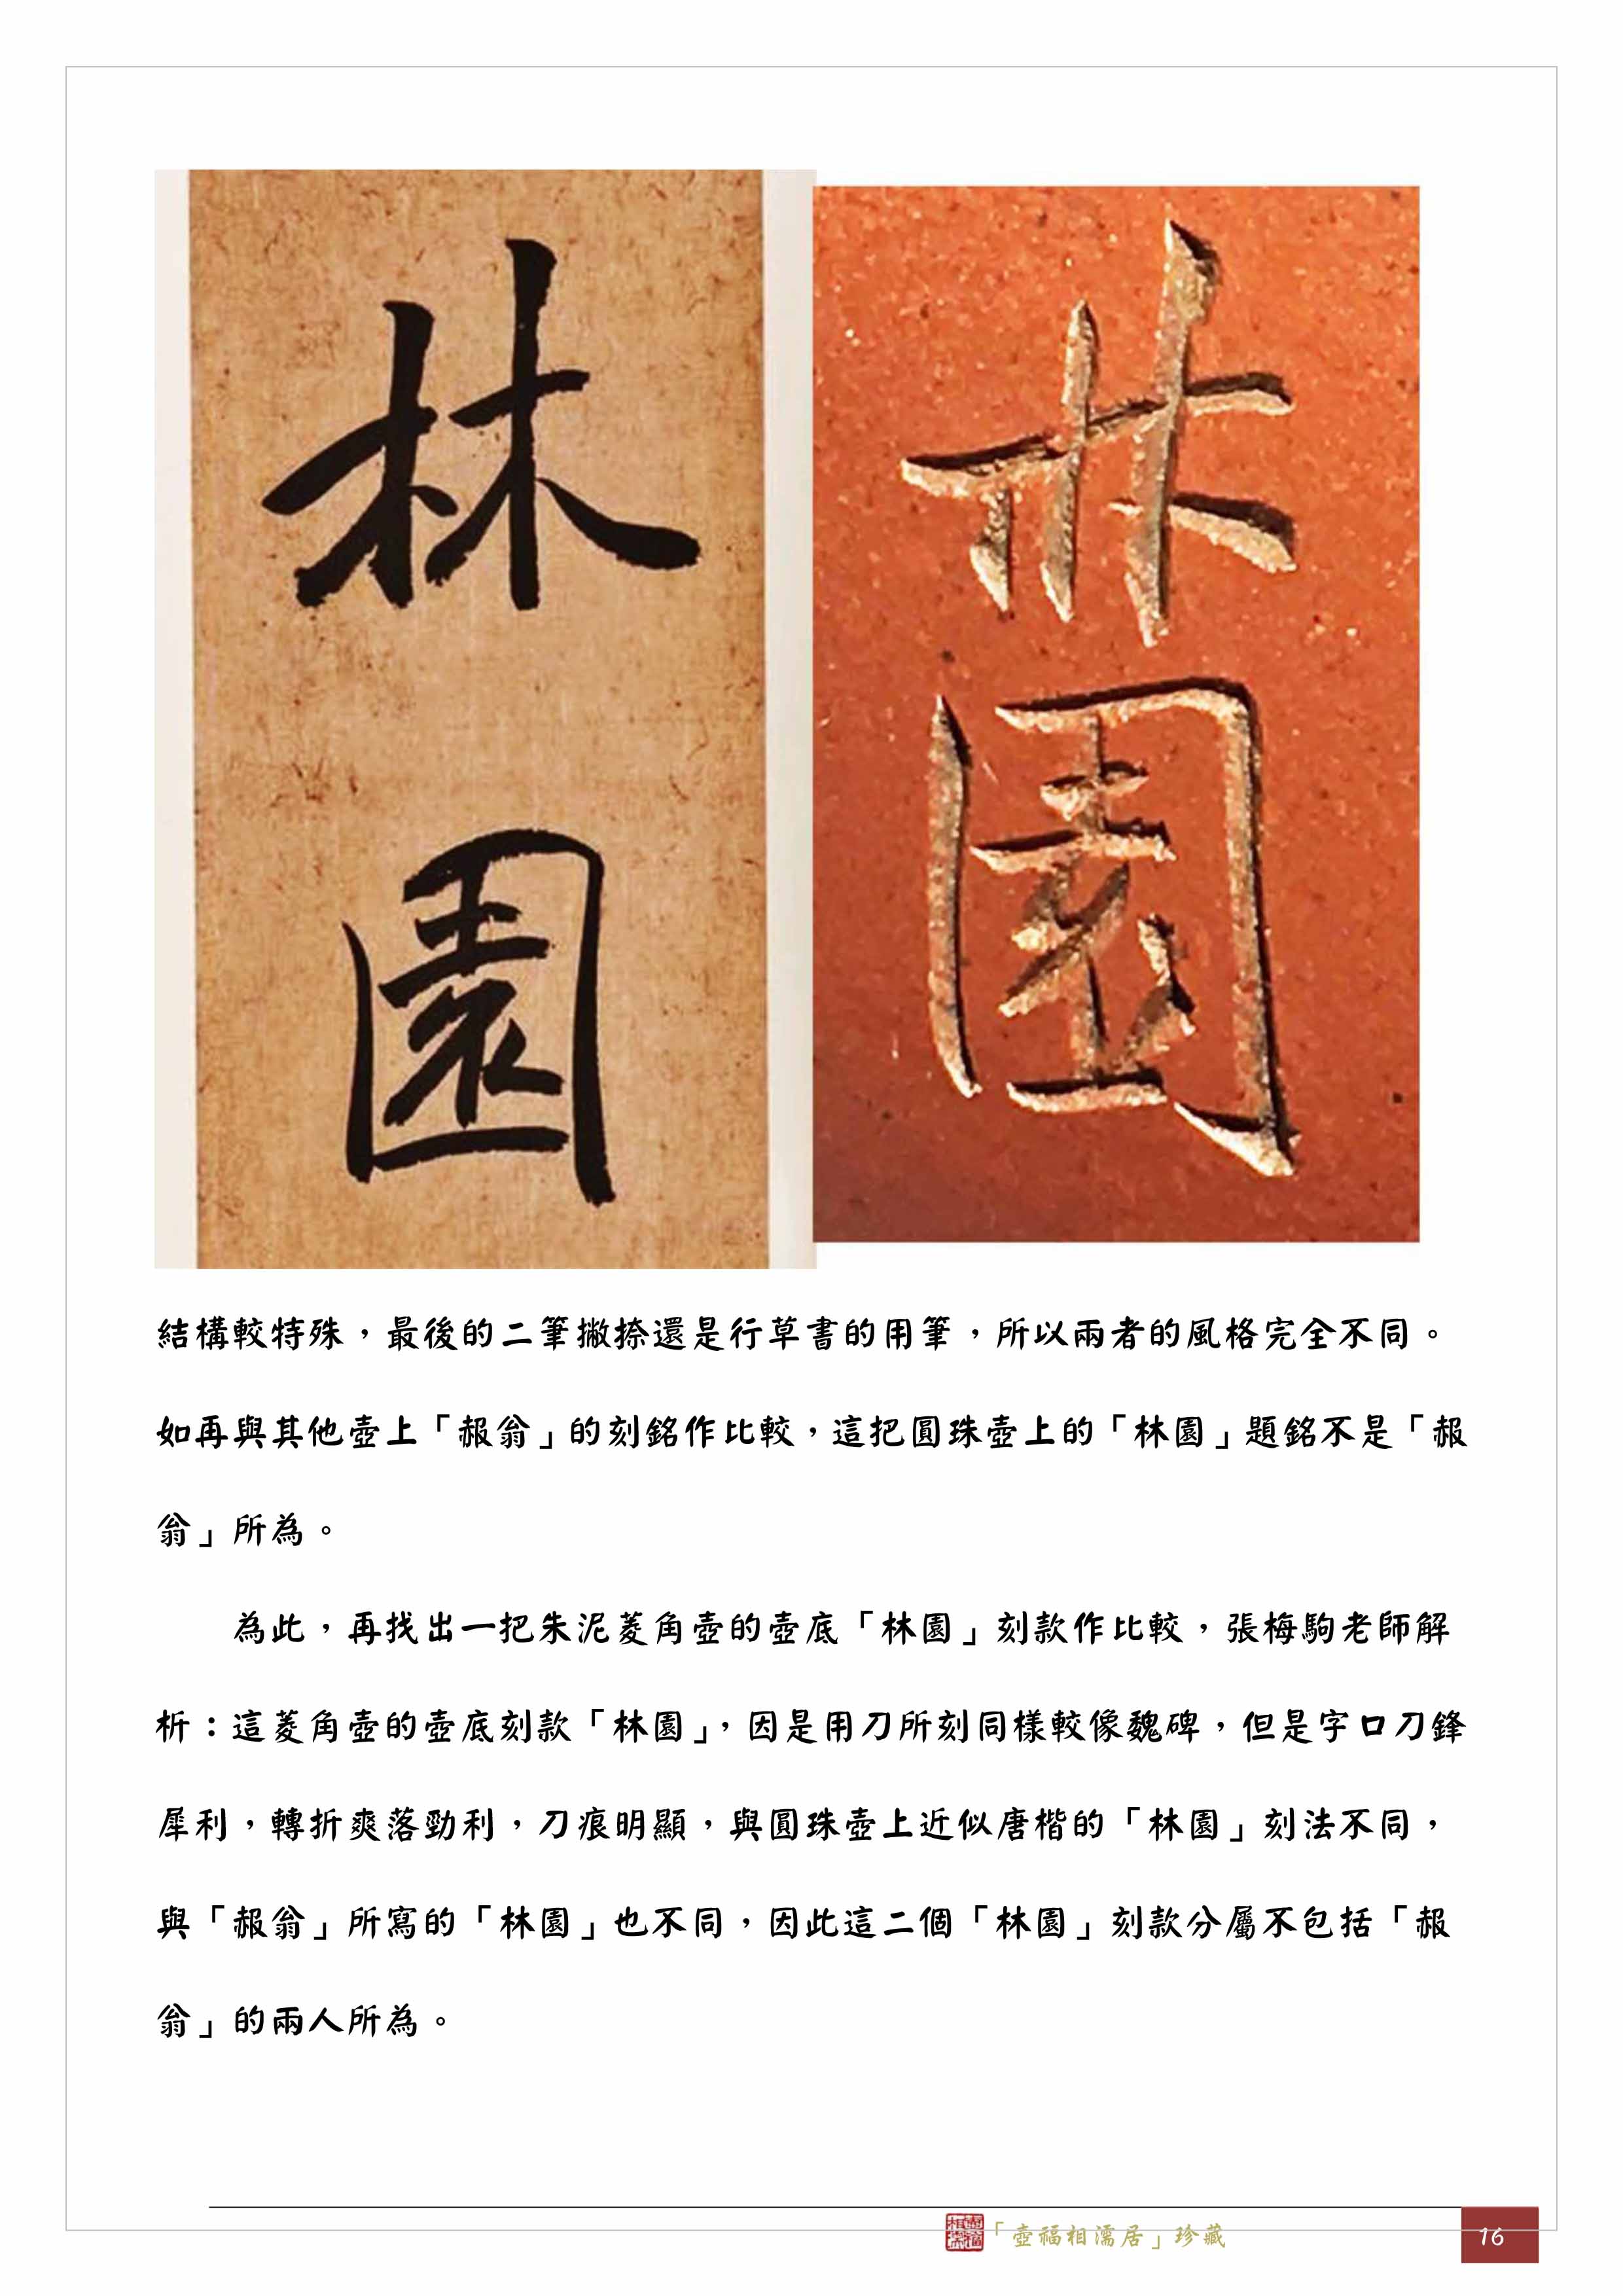 林
園
林
園
結構較特殊，最後的二筆撇捺還是行草書的用筆，所以兩者的風格完全不同。
如再與其他壺上「赧翁」的刻銘作比較，這把圓珠壺上的「林園」題銘不是「赧
翁」所為。
為此，再找出一把朱泥菱角壺的壺底「林園」刻款作比較，張梅駒老師解
析：這菱角壺的壺底刻款「林園」，因是用刀所刻同樣較像魏碑，但是字口刀鋒
犀利，轉折爽落勁利，刀痕明顯，與圓珠壺上近似唐楷的「林園」刻法不同，
與「赧翁」所寫的「林園」也不同，因此這二個「林園」刻款分屬不包括「赧
翁」的兩人所為。
「壺福相濡居」珍藏
16